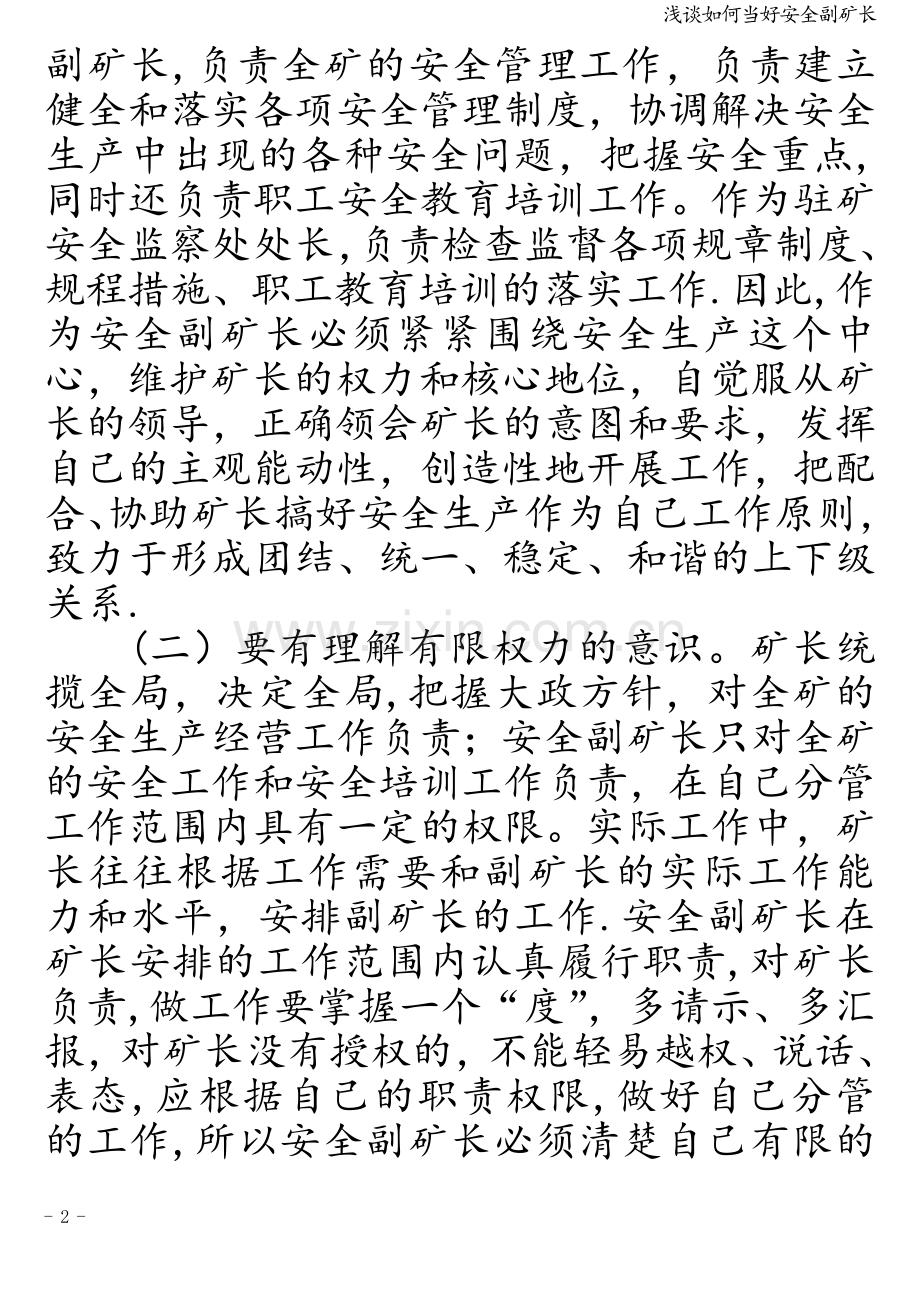 浅谈如何当好安全副矿长
副矿长,负责全矿的安全管理工作，负责建立
健全和落实各项安全管理制度，协调解决安全
生产中出现的各种安全问题，把握安全重点,
同时还负责职工安全教育培训工作。作为驻矿
安全监察处处长,负责检查监督各项规章制度、
规程措施、职工教育培训的落实工作.因此,作
为安全副矿长必须紧紧围绕安全生产这个中
心，维护矿长的权力和核心地位，自觉服从矿
长的领导，正确领会矿长的意图和要求，发挥
自己的主观能动性，创造性地开展工作，把配
合、协助矿长搞好安全生产作为自己工作原则,
致力于形成团结、统一、稳定、和谐的上下级
关系.
www.zixin.com.cn
（二）要有理解有限权力的意识。矿长统
揽全局，决定全局,把握大政方针，对全矿的
安全生产经营工作负责；安全副矿长只对全矿
的安全工作和安全培训工作负责，在自己分管
工作范围内具有一定的权限。实际工作中，矿
长往往根据工作需要和副矿长的实际工作能
力和水平，安排副矿长的工作.安全副矿长在
矿长安排的工作范围内认真履行职责,对矿长
负责,做工作要掌握一个“度”，多请示、多汇
报，对矿长没有授权的，不能轻易越权、说话、
表态,应根据自己的职责权限,做好自己分管
的工作,所以安全副矿长必须清楚自己有限的
- 2 -